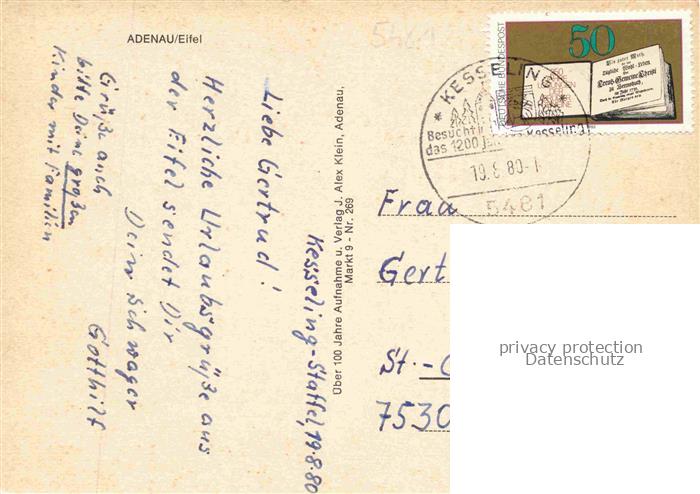 ADENAU/Eifel
Kesseling-Staffel, 19.8.80
Liebe Gertrud!
Herzliche Urlaubsgrüße aus
der Eifel sendet Dir
Dein Schwager
Gotthilf
Grüße auch
bitte Deine großen
Kinder mit Familien
Über 100 Jahre Aufnahme u. Verlag J. Alex Klein, Adenau,
Markt 9 - Nr. 269
DEUTSCHE BUNDESPOST
50
KESSELING
Besucht
Kesseling
das 1200
19.8.80-1
5481
Frau
Gert
St.-
7530
privacy protection
Datenschutz